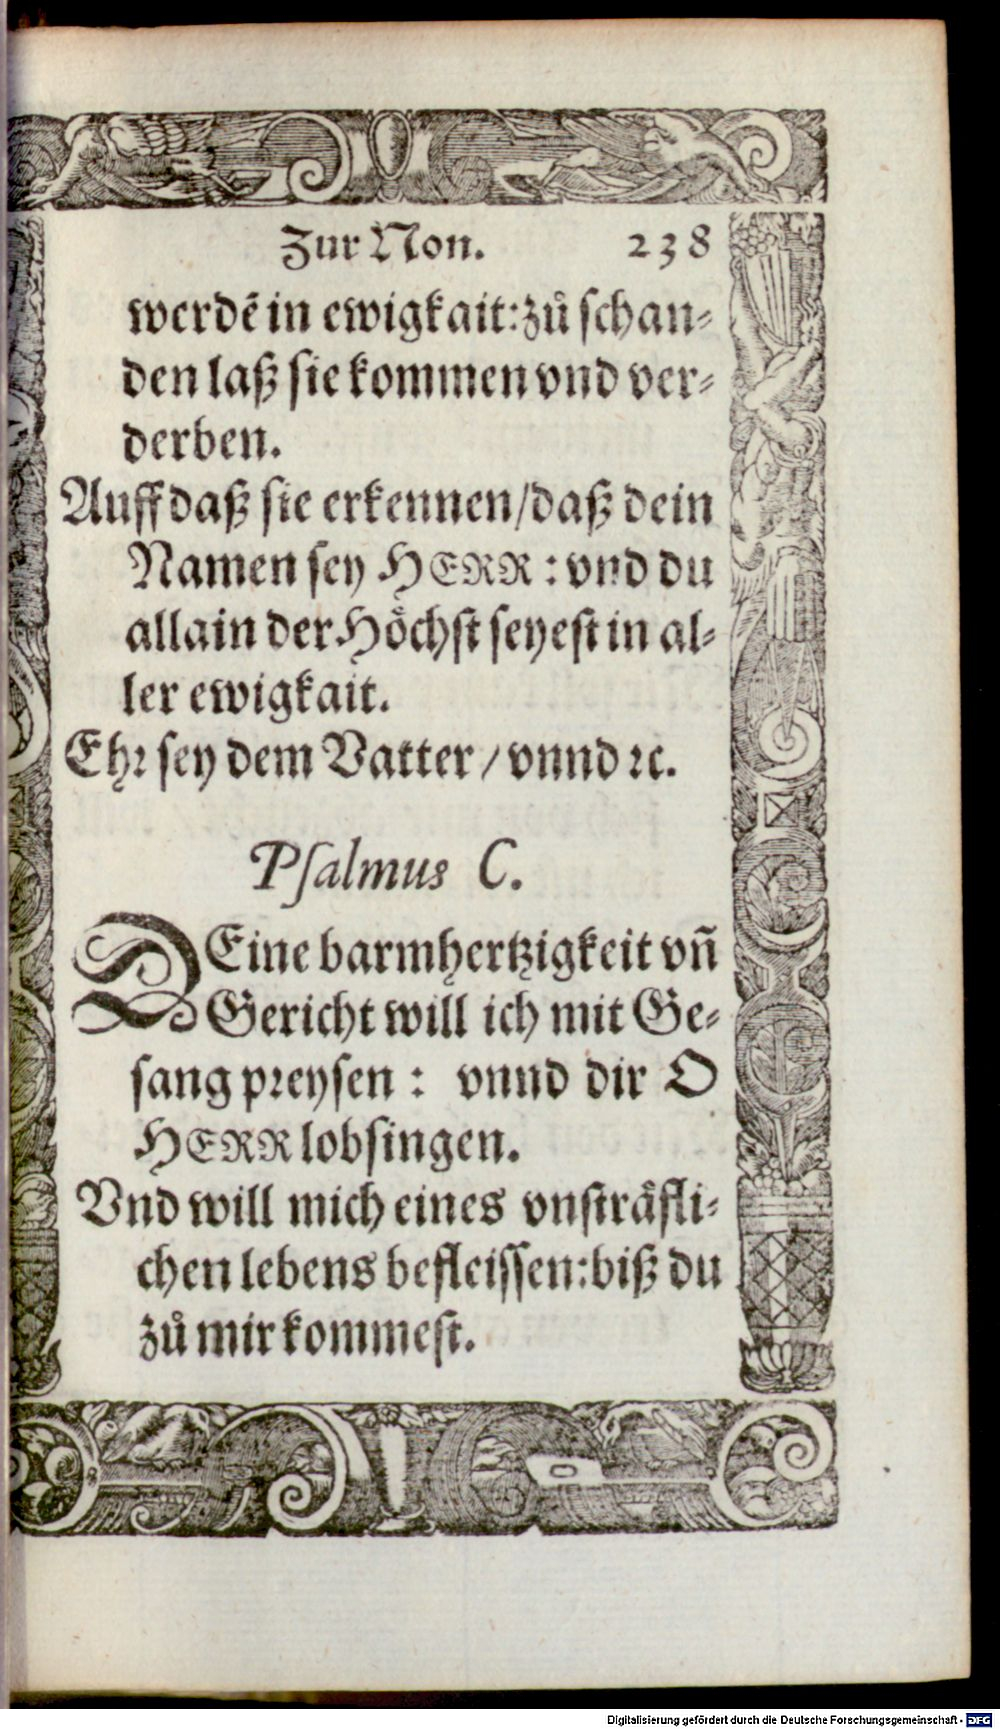 Zur Non. 238
werdẽ in ewigkait: zů schan-
den laß sie kommen vnd ver-
derben.
Auff daß sie erkennen / daß dein
Namen sey HERR: vnd du
allain der Hoͤchst seyest in al-
ler ewigkait.
Ehꝛ sey dem Vatter / vnnd ꝛc.
Psalmus C.
DEine barmhertzigkeit vñ
Gericht will ich mit Ge-
sang pꝛeysen: vnnd dir O
HERR lobsingen.
Vnd will mich eines vnstraͤfli-
chen lebens befleissen: biß du
zů mir kommest.
Digitalisierung gefördert durch die Deutsche Forschungsgemeinschaft - DFG